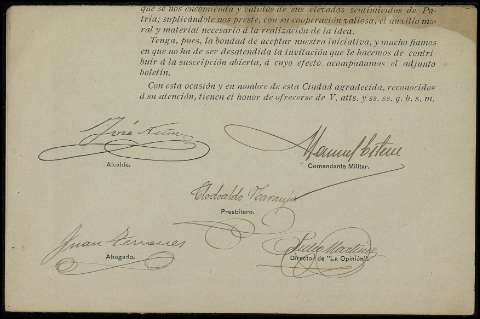 que se nos encomienda y válidos de sus elevados sentimientos de Pa-
tria, suplicándole nos preste, con su cooperación valiosa, el auxilio mo-
ral y material necesario á la realización de la idea.
Tenga, pues, la bondad de aceptar nuestra iniciativa, y mucho fiamos
en que no ha de ser desatendida la invitación que le hacemos de contri-
buir á la suscripción abierta, á cuyo efecto acompañamos el adjunto
boletín.
Con esta ocasión y en nombre de esta Ciudad agradecida, reconocidos
á su atención, tienen el honor de ofrecerse de V. atts. y ss. ss. q. b. s. m.
José
Alcalde.
Manuel
Comandante Militar.
Clodoaldo Naranjo
Presbítero.
Juan Terrones
Abogado.
Julio Martínez
Director de "La Opinión".